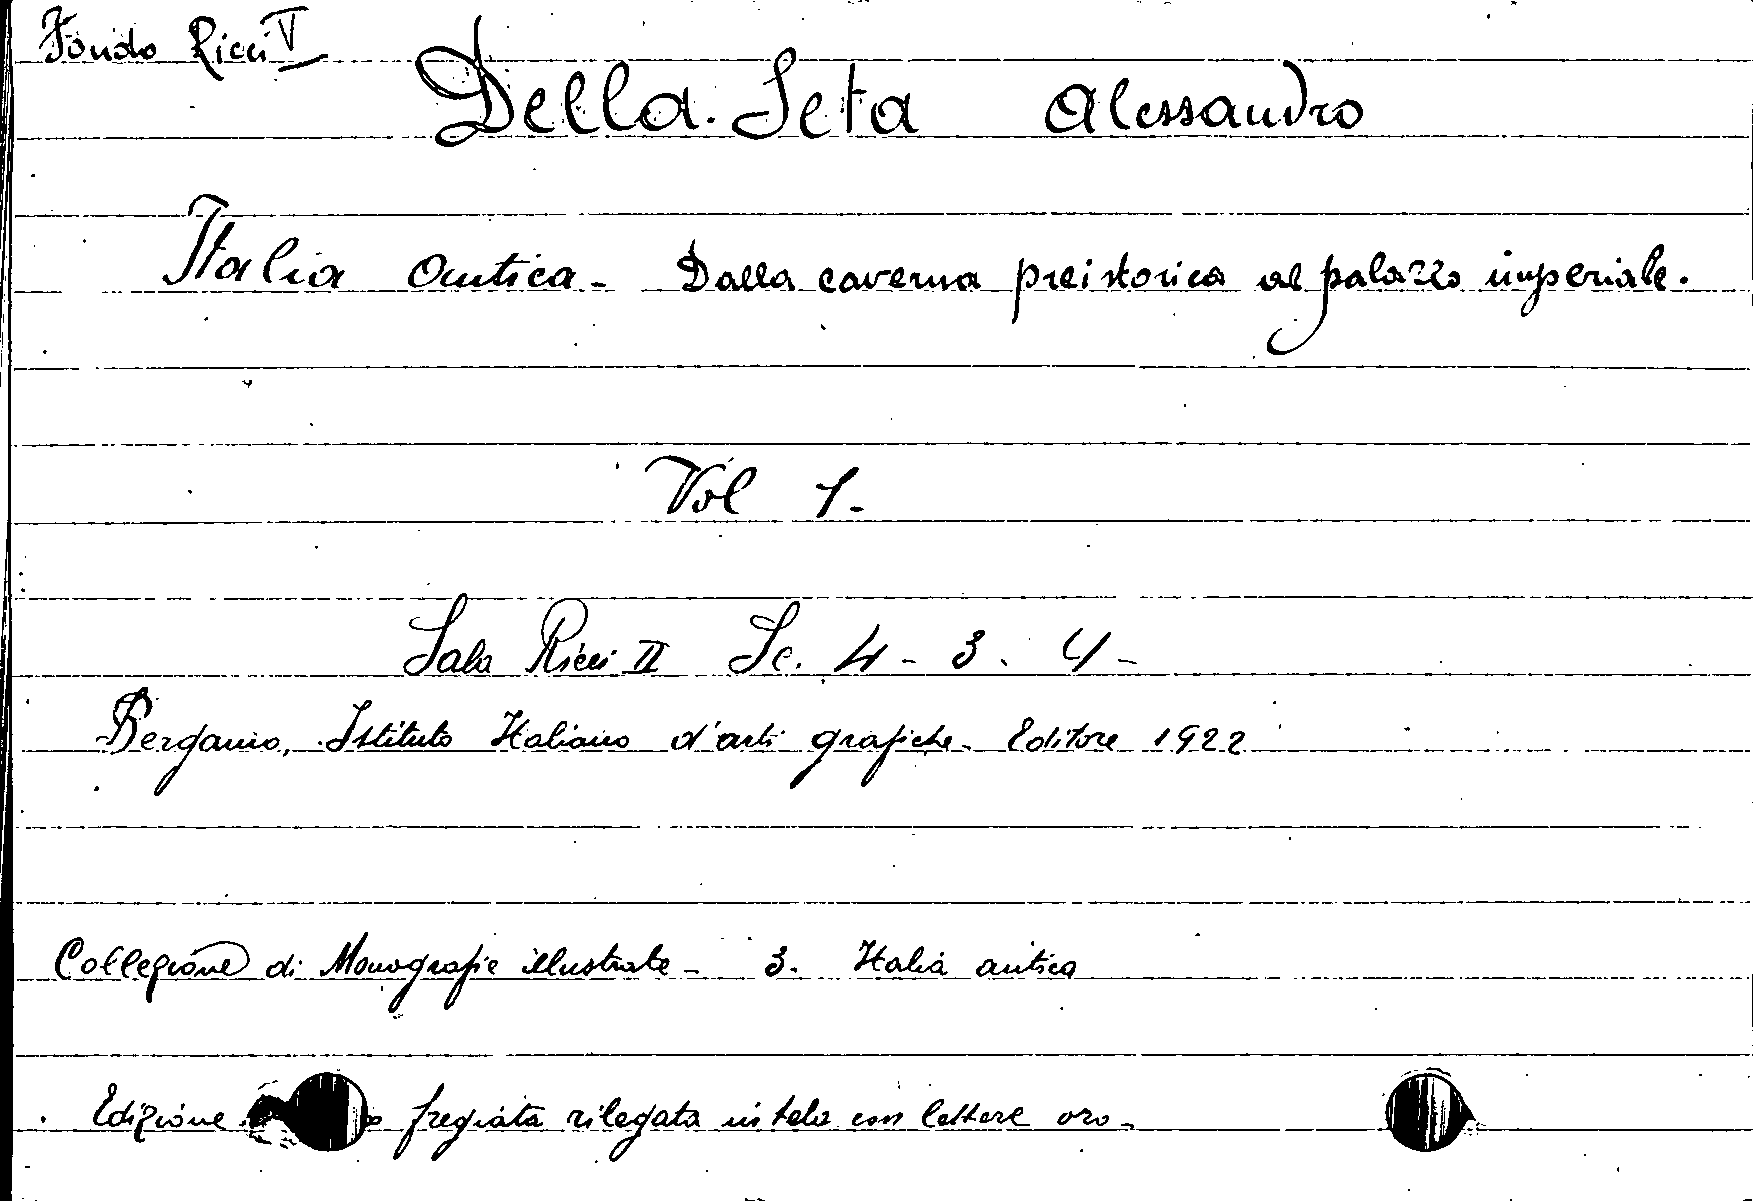 Fondo Ricci V
Della Seta Alessandro
Italia antica - Dalla caverna preistorica al palazzo imperiale.
Vol 1.
Sala Ricci II Sc. 4 - 3. 4 -
Bergamo, Istituto Italiano d'arti grafiche. Editore 1922
Collezione di Monografie illustrate - 3. Italia antica
Edizione fregiata rilegata in tela con lettere oro.